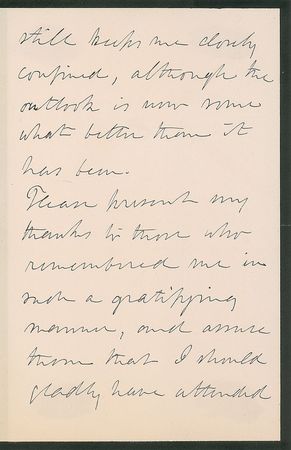 still keeps me closely
confined, although the
outlook is now some
what better than it
has been.
Please present my
thanks to those who
remembered me in
such a gratifying
manner, and assure
them that I should
gladly have attended